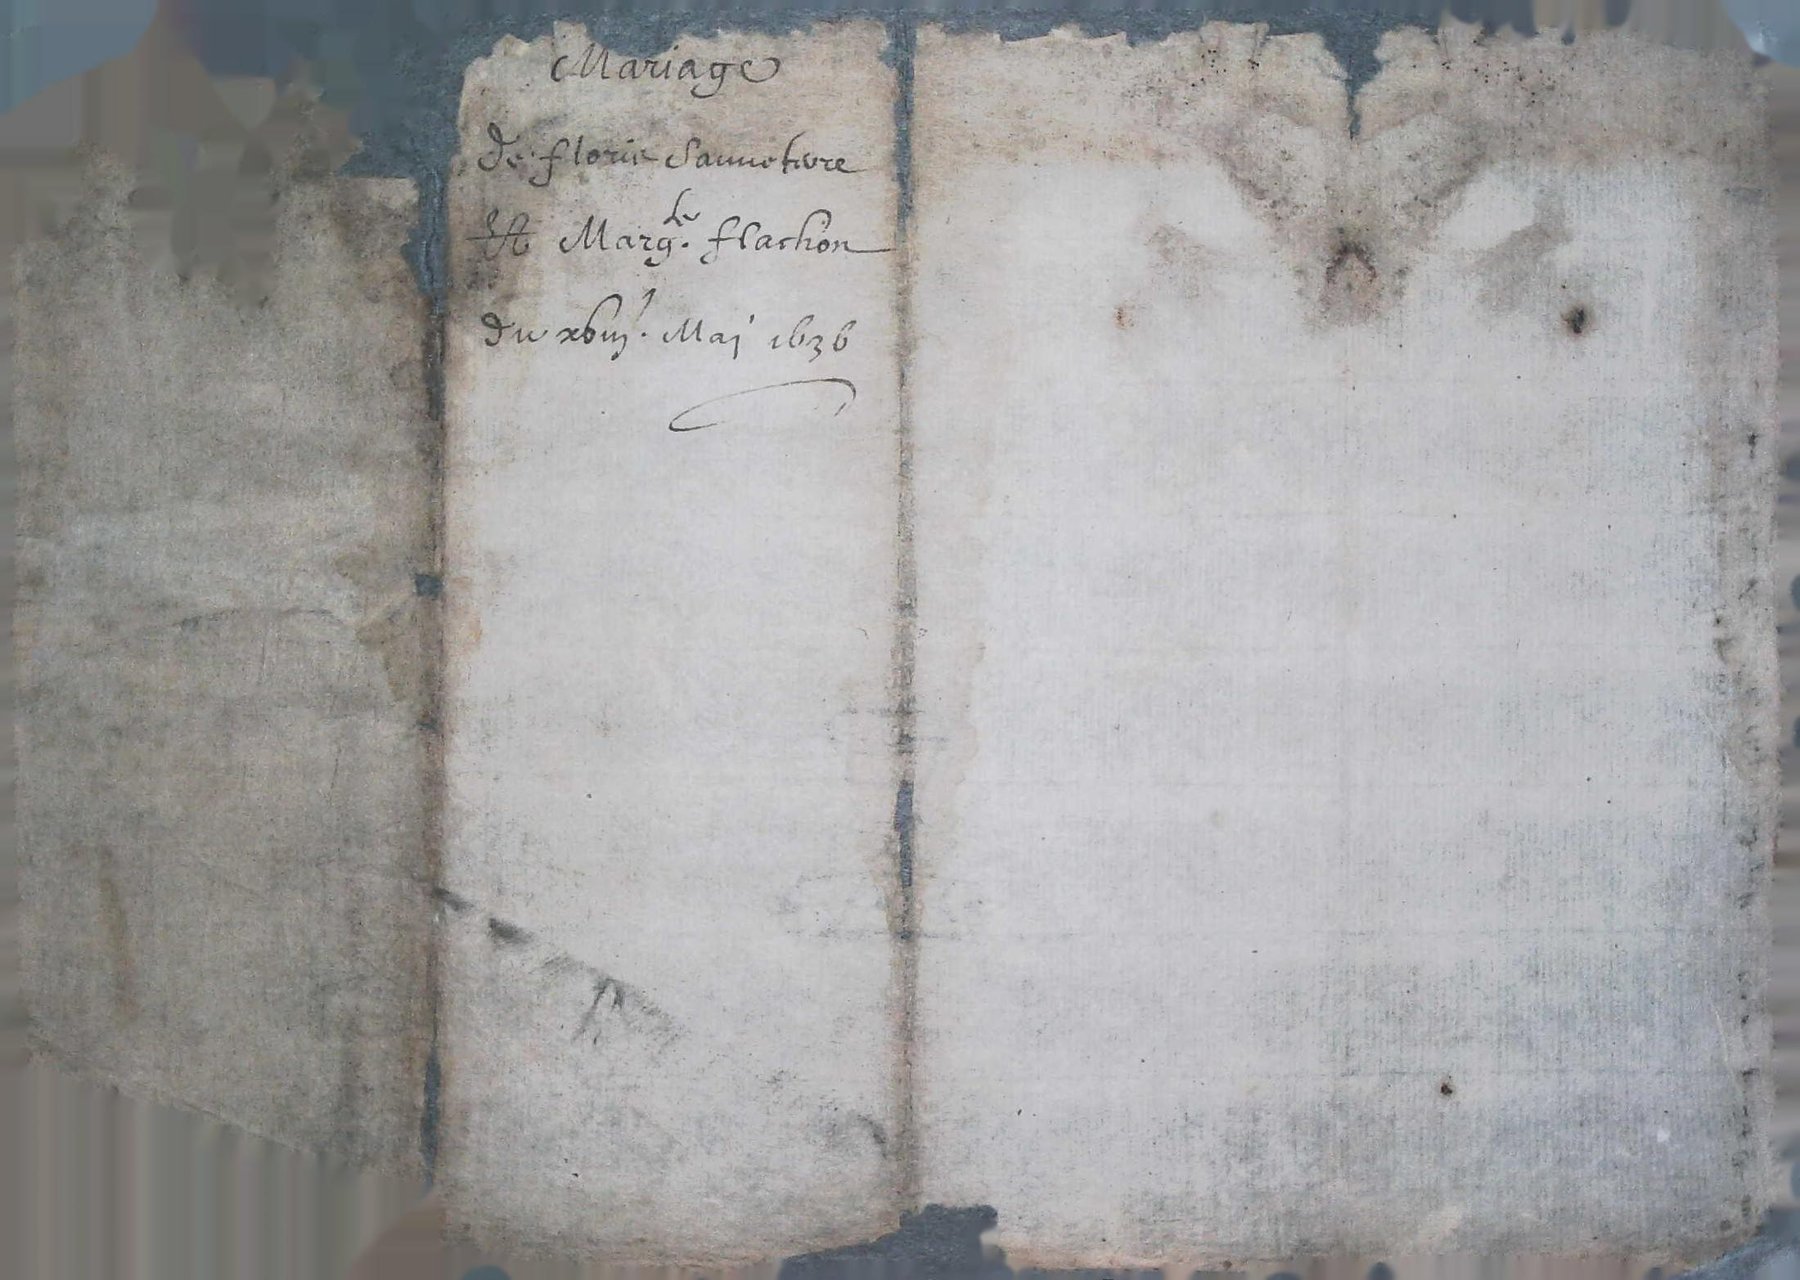 Mariage
de florie Sauueterre
Et Marg.le flachon
du xbiij.e Maj 1636